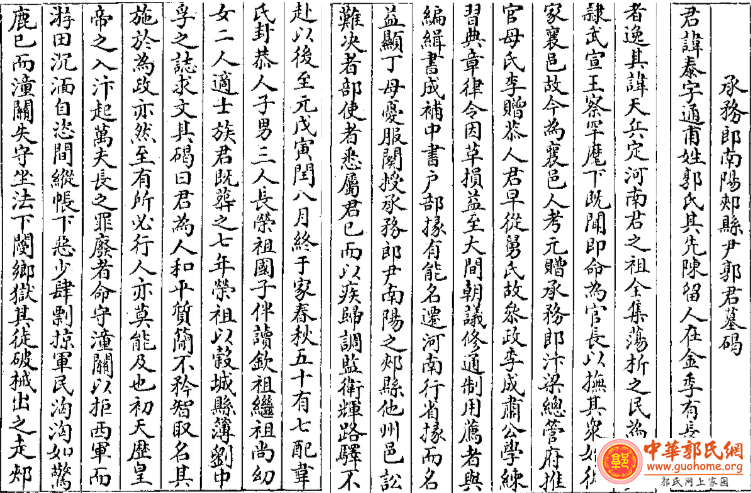 承務郎南陽郟縣尹郭君墓碣
君諱泰字通甫姓郭氏其先陳留人在金季有長
者逸其諱天兵定河南君之祖全集蕩析之民為
隸武宣王察罕麾下既聞即命為官長以撫其衆始徙
家襄邑故今為襄邑人考元贈承務郎汴梁總管府推
官母氏李贈恭人君早從舅氏故叅政李成肅公學練
習典章律令因草損益至大間朝議修通制用薦者與
編緝書成補中書户部掾有能名遷河南行省掾而名
益顯丁母憂服闋授承務郎尹南陽之郟縣他州邑訟
難决者部使者悉屬君已而以疾歸調監衛輝路驛不
赴以後至元戊寅閏八月終于家春秋五十有七配韋
氏封恭人子男三人長榮祖國子伴讀欽祖繼祖尚幼
女二人適士族君既葬之七年榮祖以穀城縣簿劉中
孚之誌求文其碣曰君為人和平質簡不矜智取名其
施於為政亦然至有所必行人亦莫能及也初天歷皇
帝之入汴起萬夫長之罪廢者命守潼關以拒西軍而
游田沉湎自恣間縱帳下惡少肆剽掠軍民洶洶如驚
鹿已而潼關失守坐法下閿鄉獄其徒破械出之走郟
中華郭氏網
www.guohome.org
郭氏网上家园